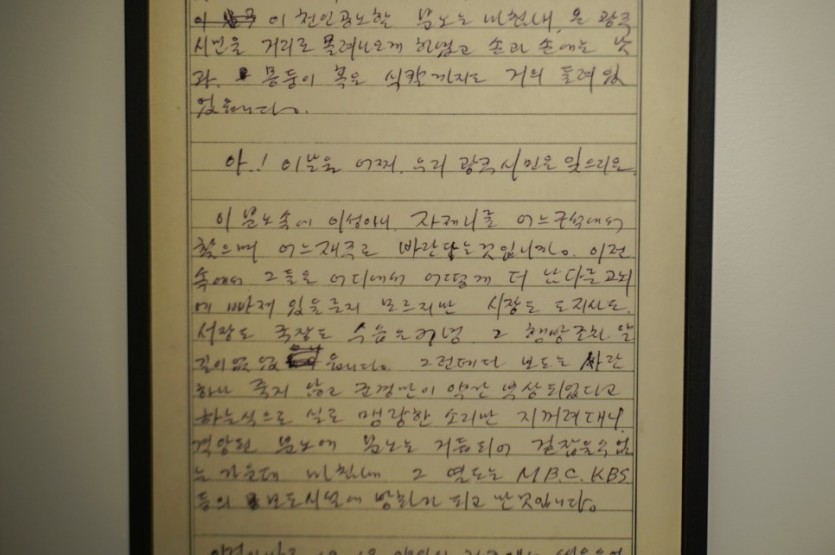 이 천인공노할 분노는 마침내, 온 광주
시민을 거리로 몰려나오게 하였고 손과 손에는 낫
과. 몽둥이 혹은 식칼까지도 거의 들려있
었읍니다.
아.! 이날을 어찌. 우리 광주시민은 잊으리요.
이 분노속에 이성이니, 자제니를 어느구석에서
찾으며 어느재주로 바란다는것입니까. 이런
속에서 그들은 어디에서 어떻게 더 남다를고뇌
에 빠져 있을른지 모르지만 시장도 도지사도.
서장도 국장도 수습은커녕. 그 행방조차 알
길이없었 읍니다. 그런데다 보도는 사람
하나 죽지 않고 군경만이 약간 부상되었다고
하는식으로 실로 맹랑한 소리만 지꺼려대니.
격앙된 분노에 분노는 거듭되어 걷잡을수없
는 가운데 마침내 그 열도는 M.B.C. KBS
등의 보도시설에 방화가 되고 만것입니다.